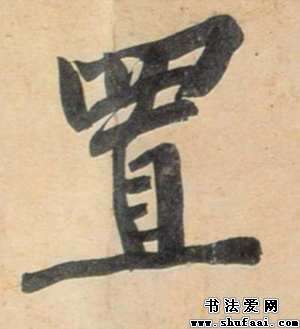 置
书法爱网
www.shufaai.com